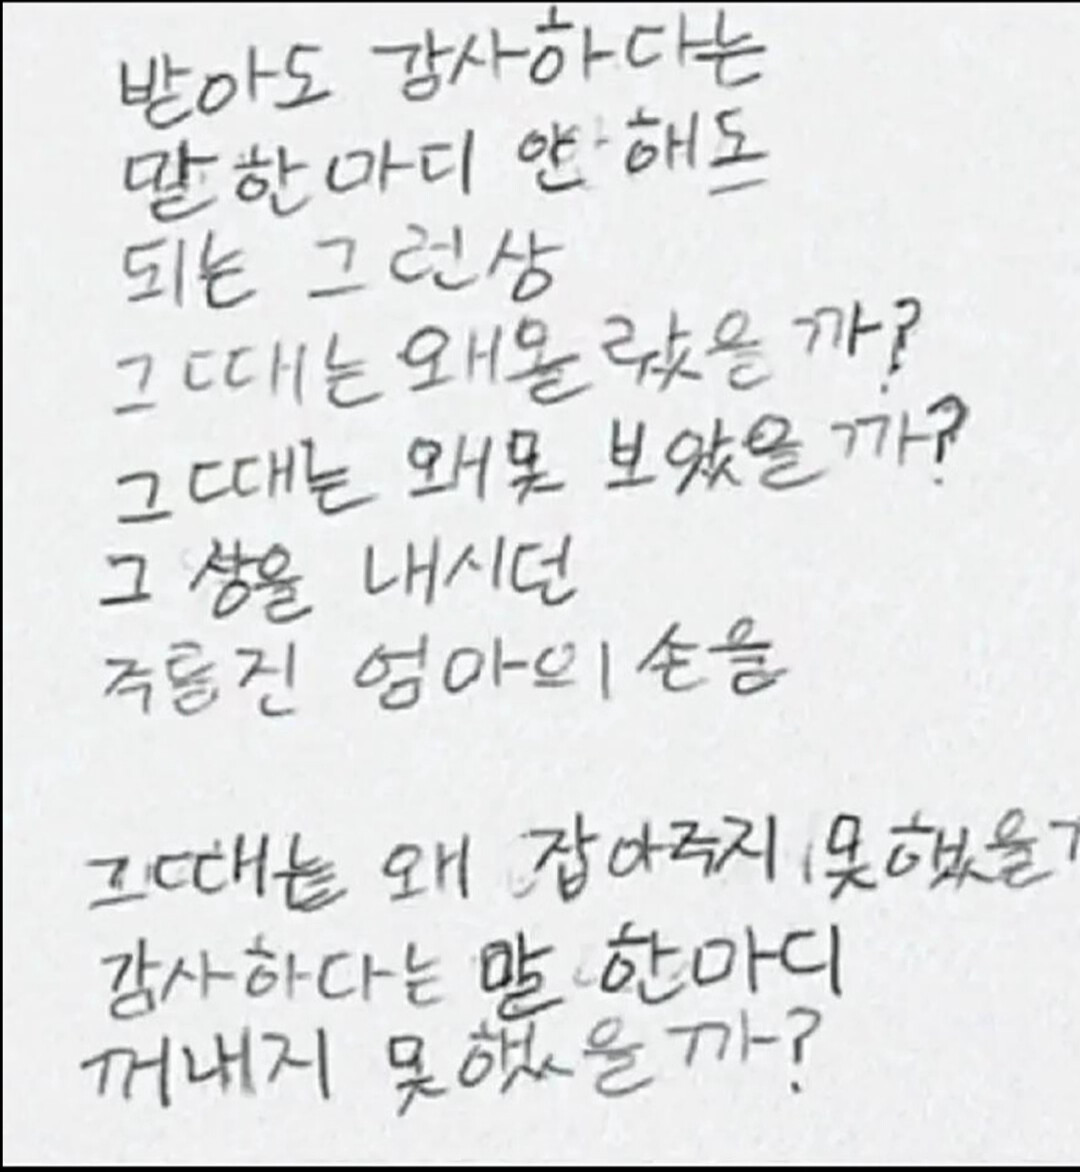 받아도 감사하다는
말 한마디 안 해도
되는 그런상
그때는 왜몰랐을까?
그때는 왜못 보았을까?
그 상을 내시던
주름진 엄마의 손을
그때는 왜 잡아주지 못했을까
감사하다는 말 한마디
꺼내지 못했을까?